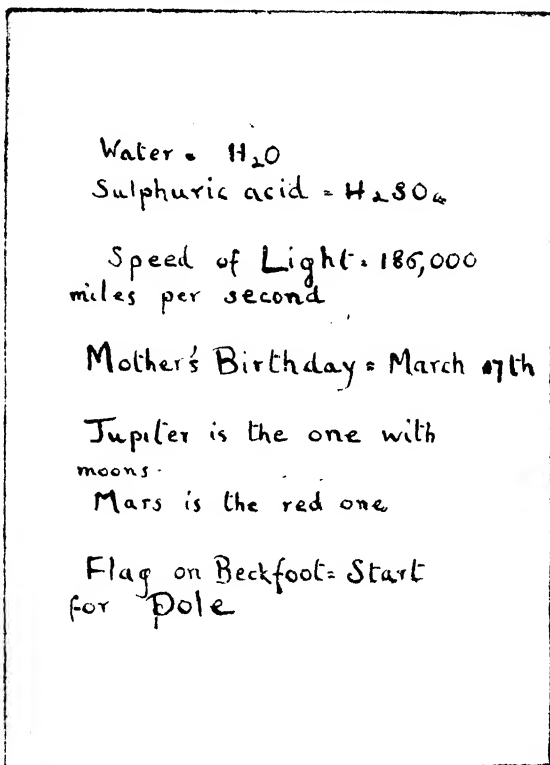 Water = H₂O
Sulphuric acid = H₂SO₄
Speed of Light = 186,000
miles per second
Mother's Birthday = March 17th
Jupiter is the one with
moons.
Mars is the red one
Flag on Beckfoot = Start
for Pole